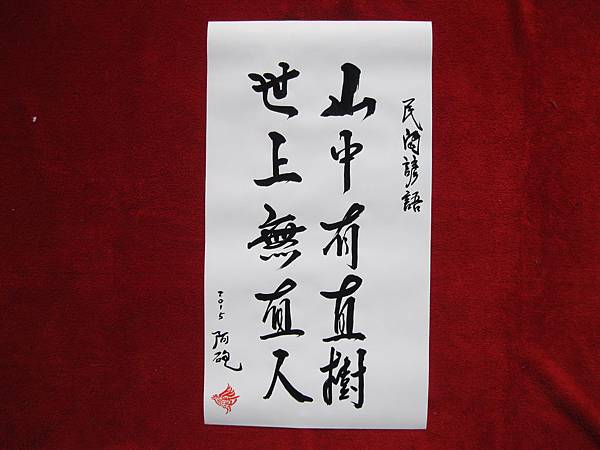 民間諺語
山中有直樹
世上無直人
2015 阿砲